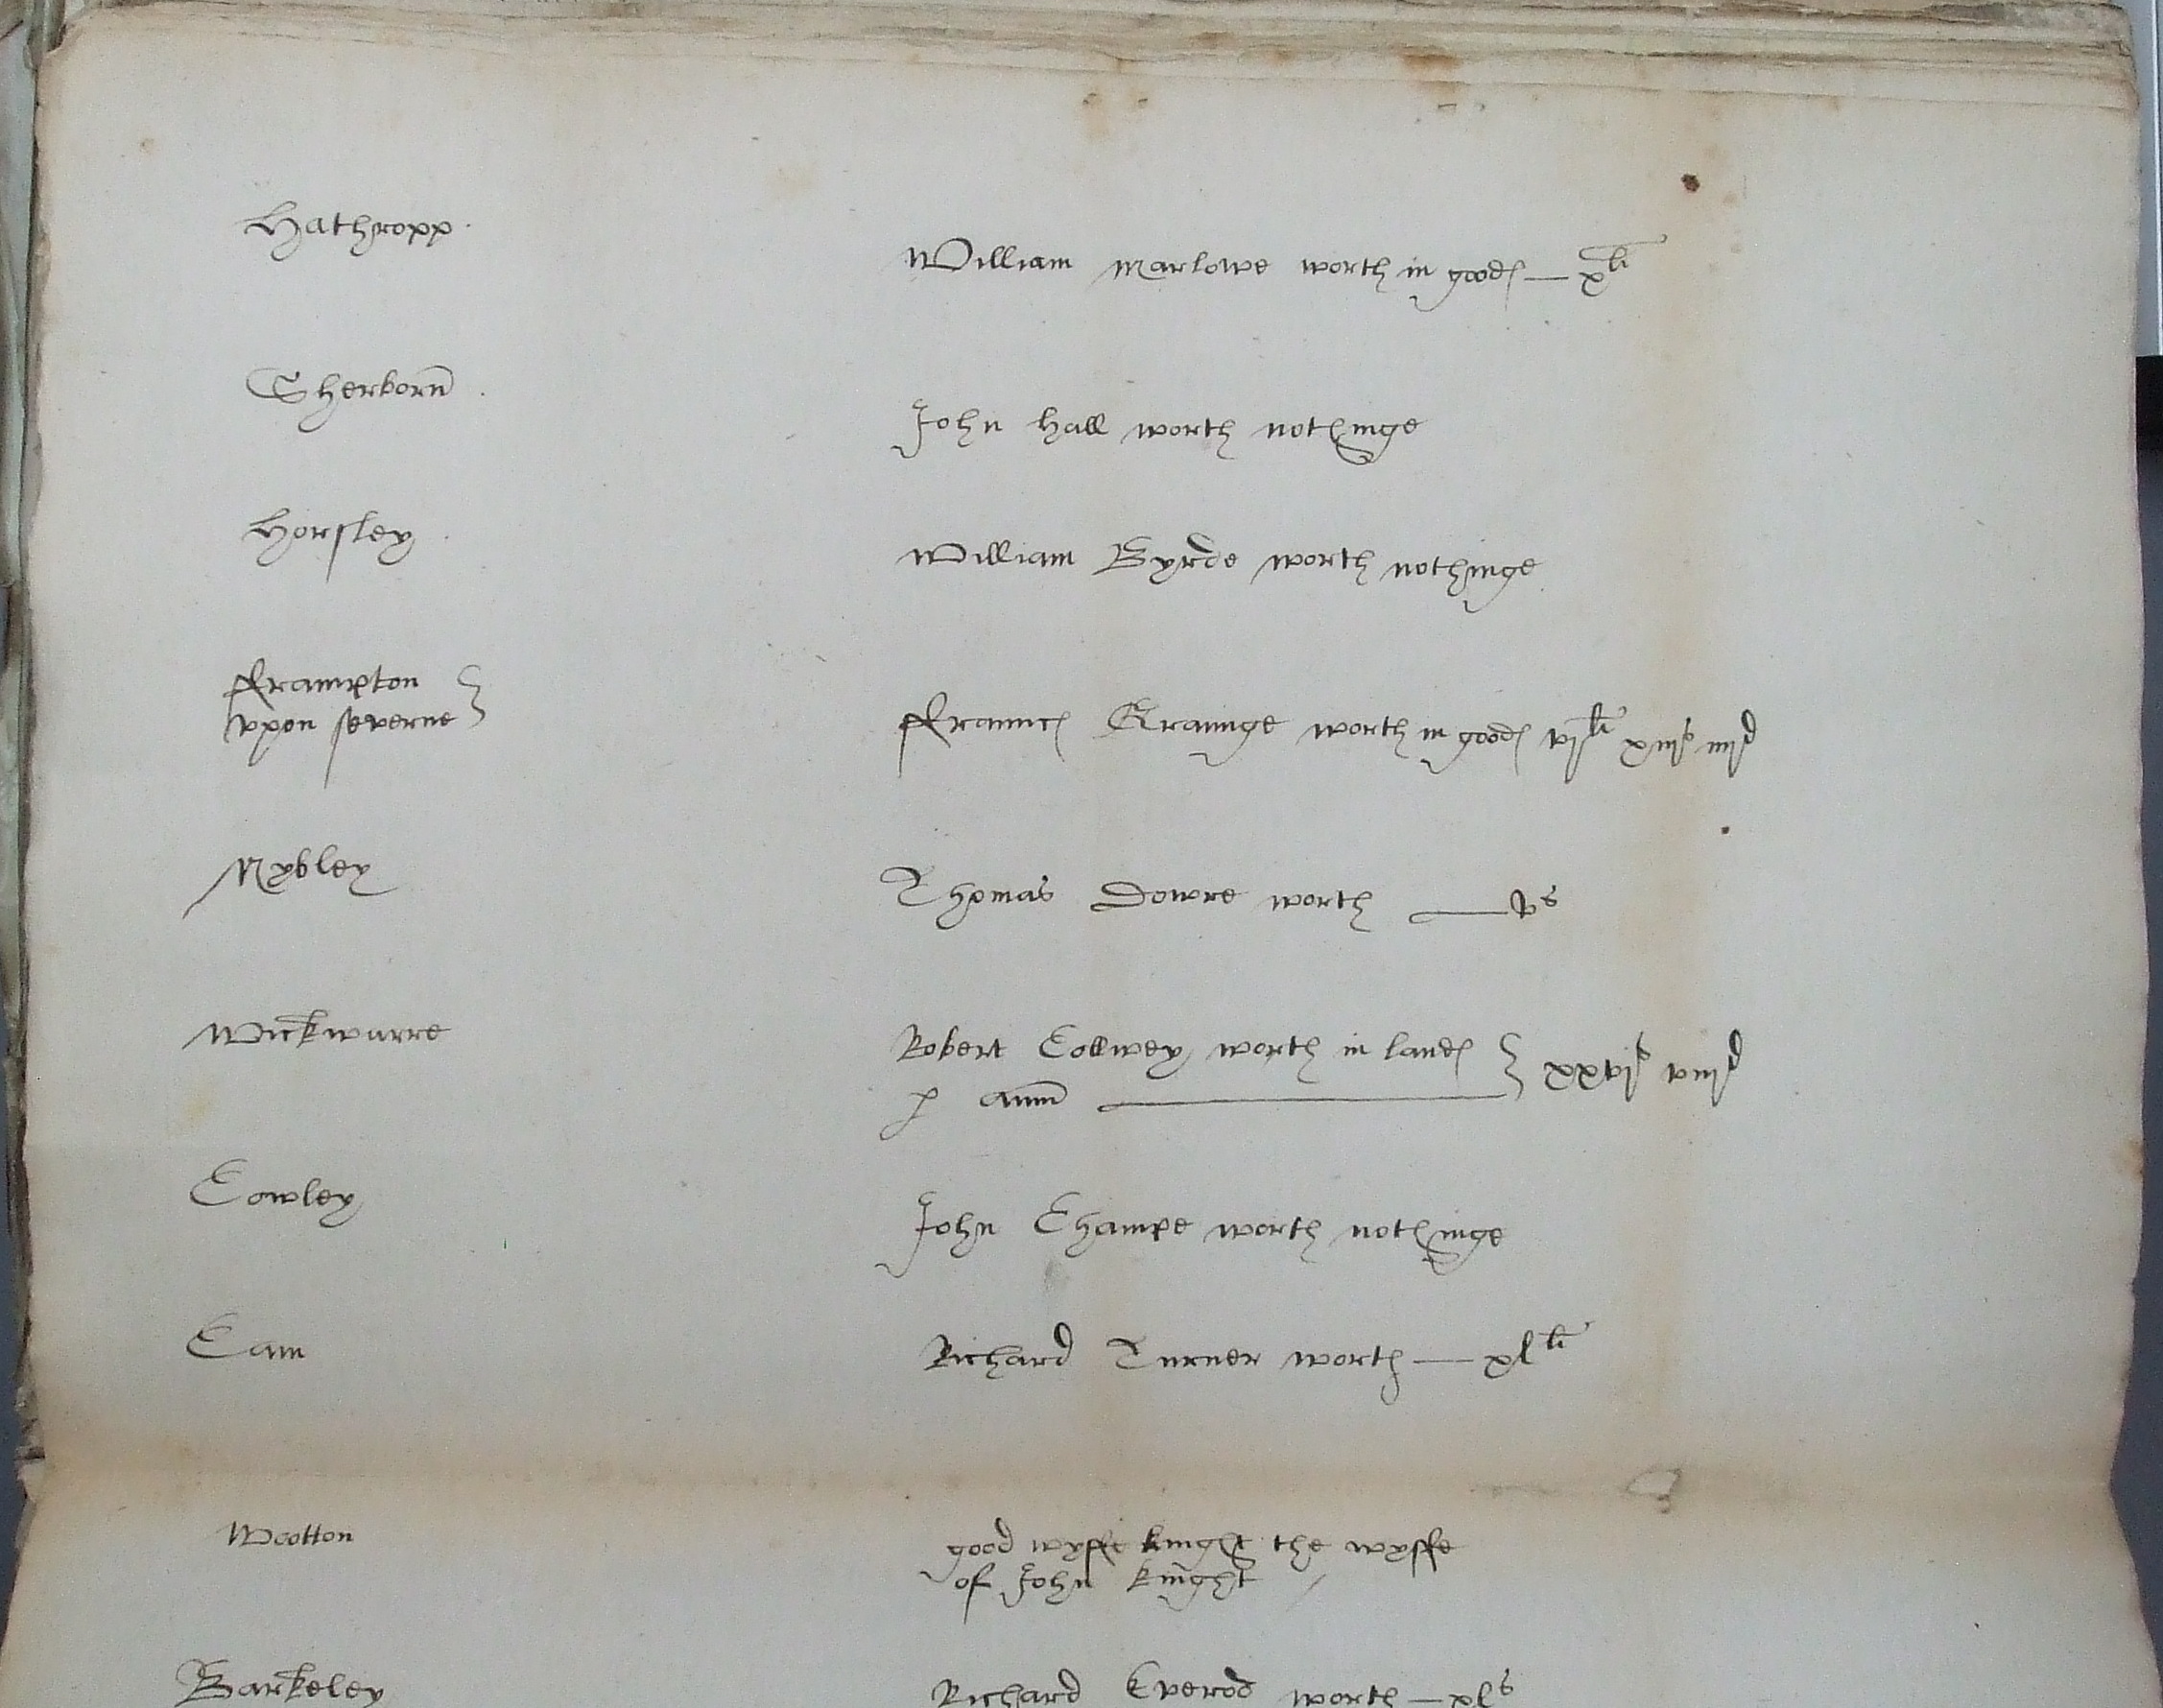 Hathropp.
William Marlowe worth in goodes — x li
Sherborn
John Hall worth nothinge
Horsley
William Byrde worth nothinge
fframpton
vpon severne
ffraunces Graunge worth in goodes vj li xiijs iiijd
Nybley
Thomas Dowre worth — vs
Wickwarre
Robert Collwey worth in landes
p ann — xxvjs viijd
Cowley
John Champe worth nothinge
Cam
Richard Turner worth — xl li
Wootton
good wyffe knight the wyffe
of John knight
Barkeley
Richard Everod worth — xls